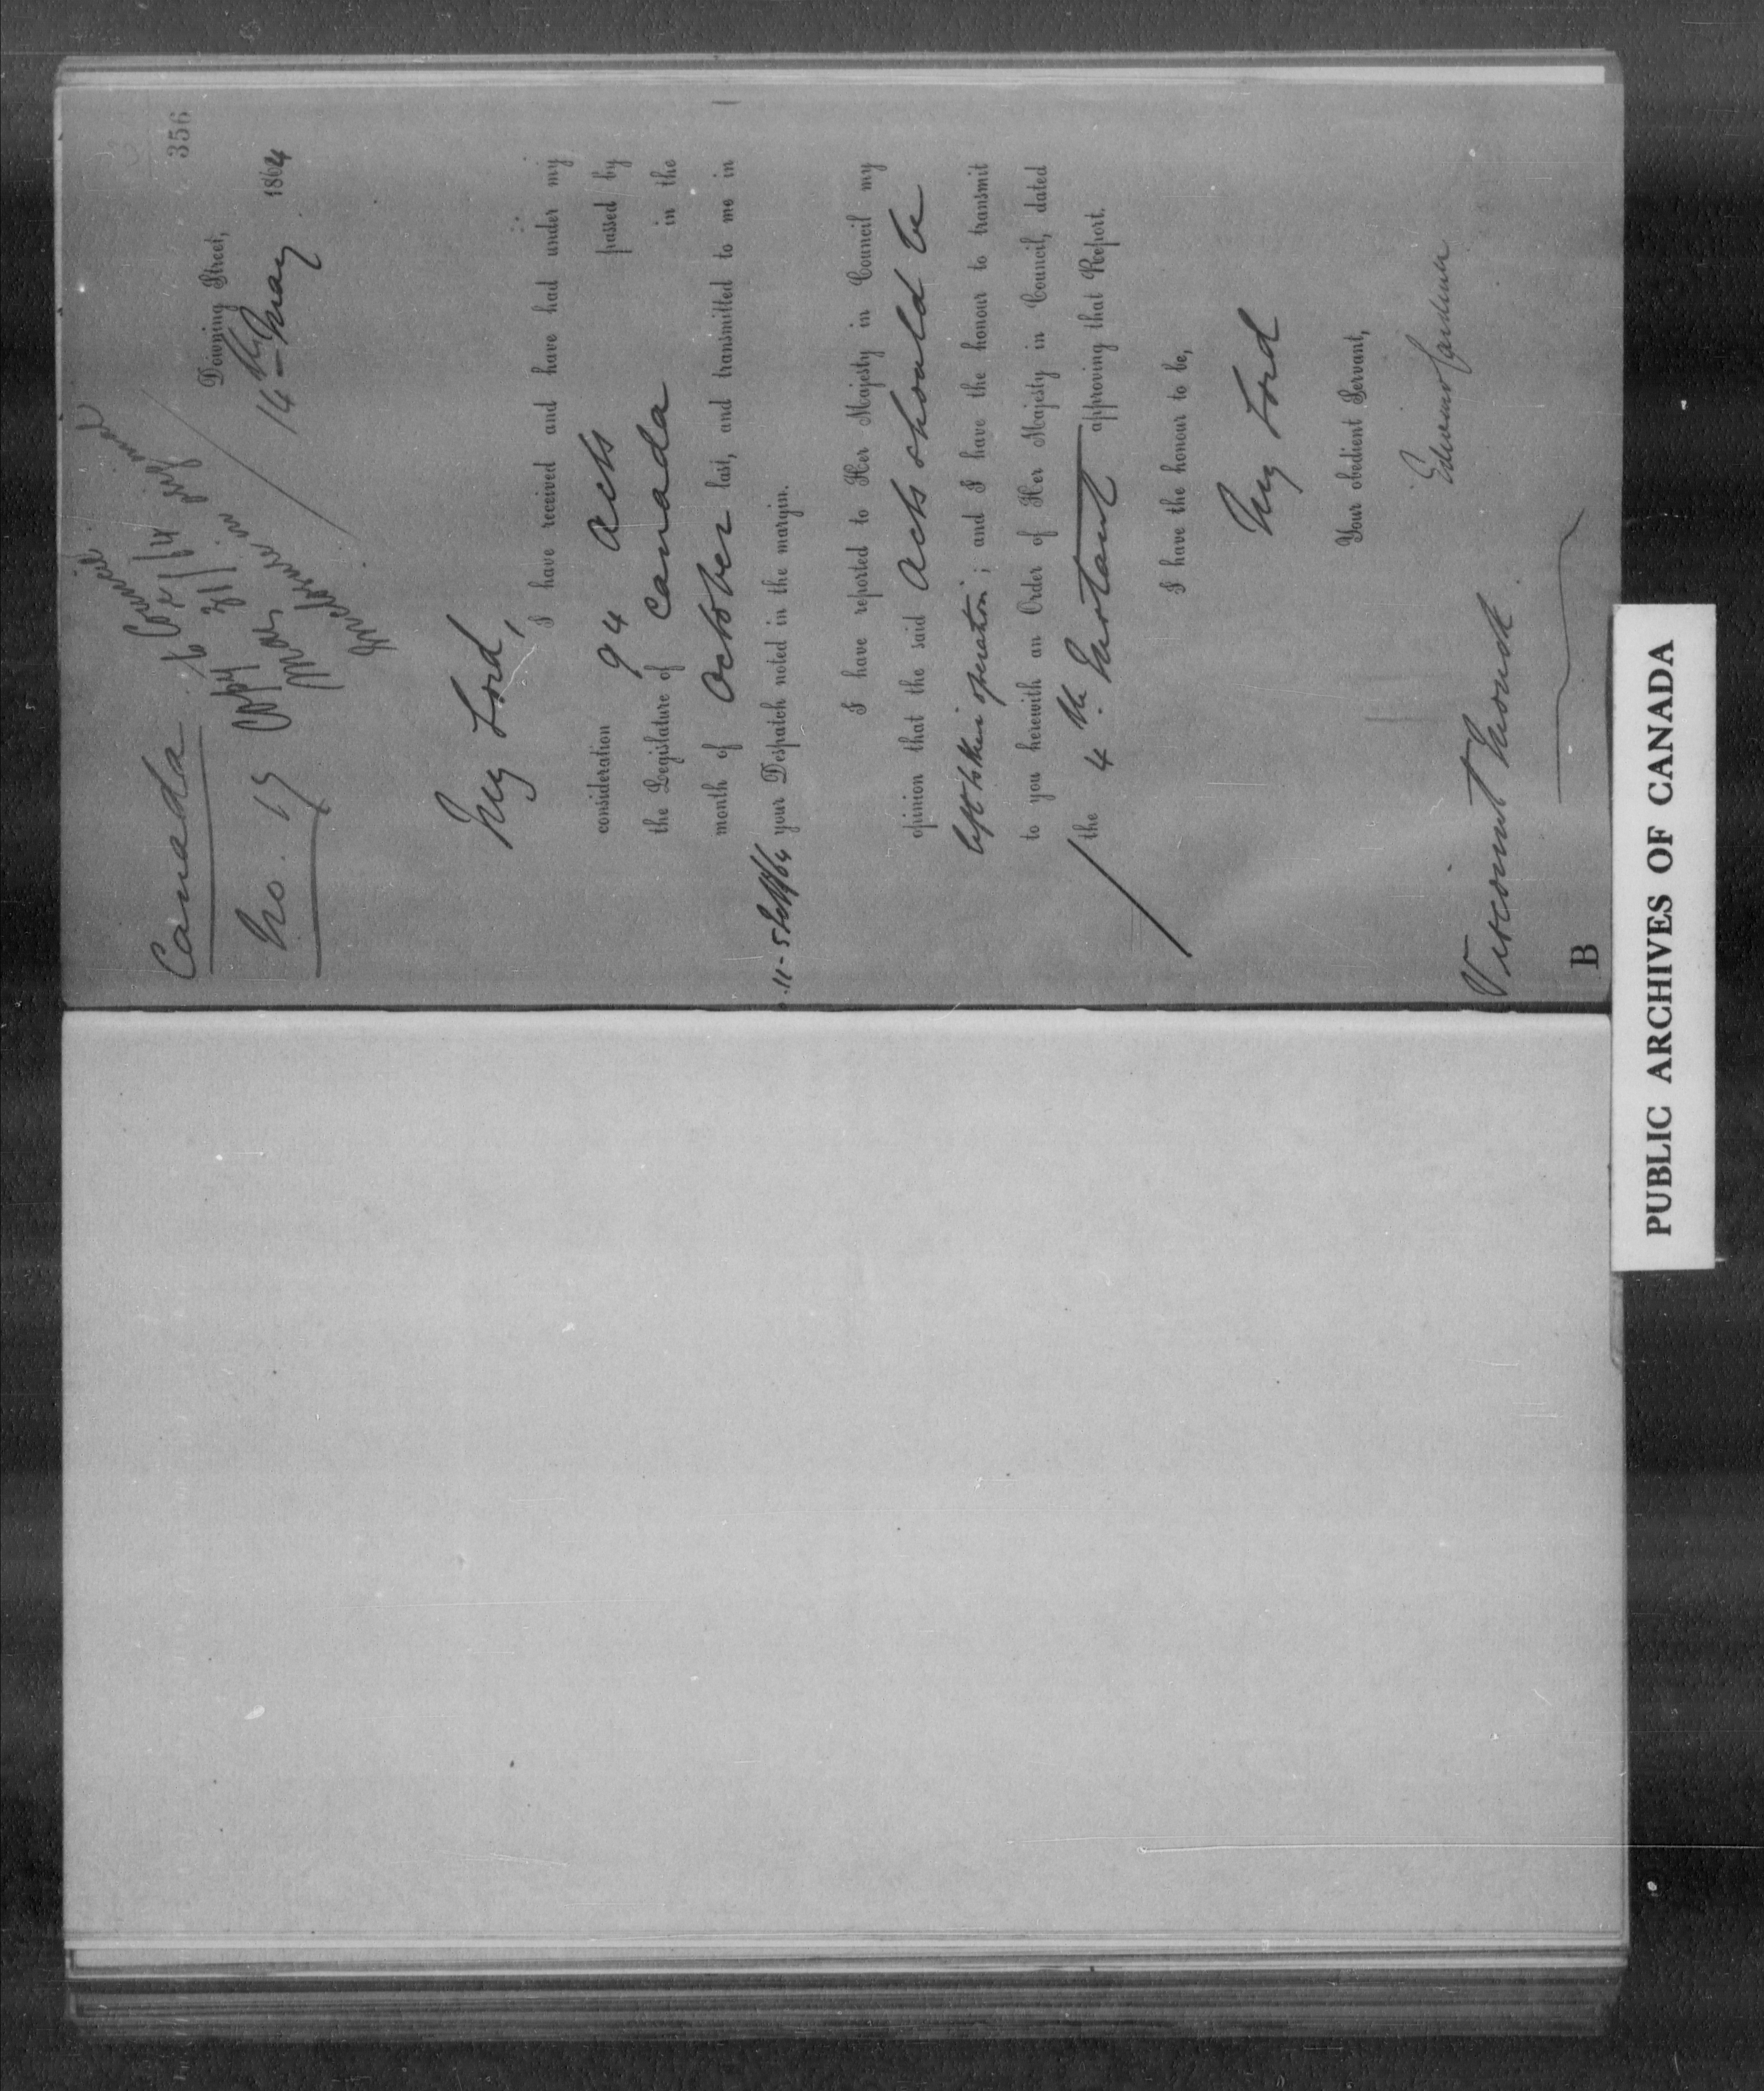 356
Canada
No. 15
Copy to Council
31/5/64
Enclosure in original
Downing Street,
14th May 1864
My Lord,
I have received and have had under my
consideration 94 Acts passed by
the Legislature of Canada in the
month of October last, and transmitted to me in
11-5 Feb/64 your Despatch noted in the margin.
I have reported to Her Majesty in Council my
opinion that the said Acts should be
left to their operation; and I have the honour to transmit
to you herewith an Order of Her Majesty in Council, dated
the 4th Instant approving that Report.
I have the honour to be,
My Lord
Your obedient Servant,
Edward Cardwell
Viscount Monck
B
PUBLIC ARCHIVES OF CANADA